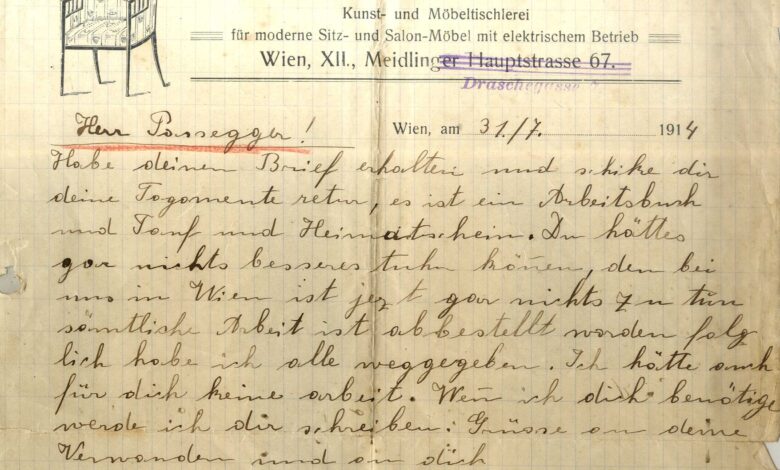 Kunst- und Möbeltischlerei
für moderne Sitz- und Salon-Möbel mit elektrischem Betrieb
Wien, XII., Meidlinger Hauptstrasse 67.
Draschegasse
Herr Passegger!
Wien, am 31/7. 1914
Habe deinen Brief erhalten und schike dir
deine Togomente retur, es ist ein Arbeitsbuch
und Tauf und Heimatschein. Du hättes
gar nichts besseres tuhn könen, den bei
uns in Wien ist jezt gar nichts zu tun
sämtliche Arbeit ist abbestellt worden folg
lich habe ich alle weggegeben. Ich hätte auch
für dich keine arbeit. Wen ich dich benötige
werde ich dir schreiben: Grüsse an deine
Verwanden und an dich